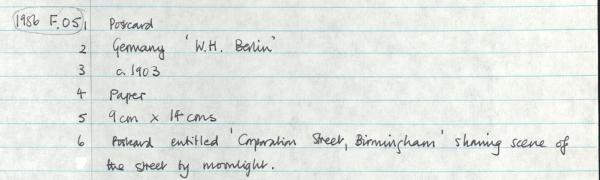 1986 F.05 1 Postcard
2 Germany 'W.H. Berlin'
3 c.1903
4 Paper
5 9cm x 14cms
6 Postcard entitled 'Corporation Street, Birmingham' showing scene of
the street by moonlight.